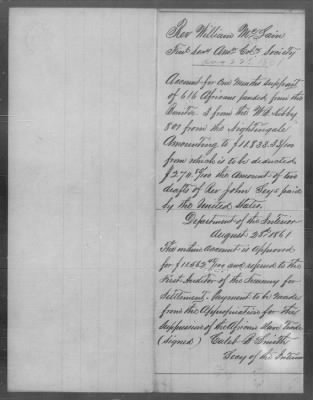 Rev William McLain
Finl Secy Amn Coln Society
Augt 22d 1861
Account for One Months support
of 616 Africans landed from the
Bonita 3 from the W R Kibby
801 from the Nightingale
Amounting to $11,833.33/100
from which is to be deducted
$270. /100 the amount of two
drafts of Rev John Seys paid
by the United States.
Department of the Interior
August 28th 1861
The within Account is approved
for /100 and referred to the
First Auditor of the Treasury for
settlement. Payment to be made
from the Appropriation for the
suppression of the African Slave Trade
(signed) Caleb B Smith
Secy of the Interior